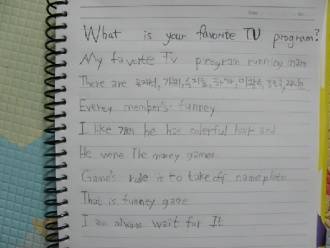 What is your favorite TV program?
My favorite TV program running man
There are 유재석, 개리, 하하, 이광수,
Everey member's funney
I like 개리 he has colerful hair and
He wons the maney games
Game's rule is to take off name plate
That is funney game
I am always wait for It